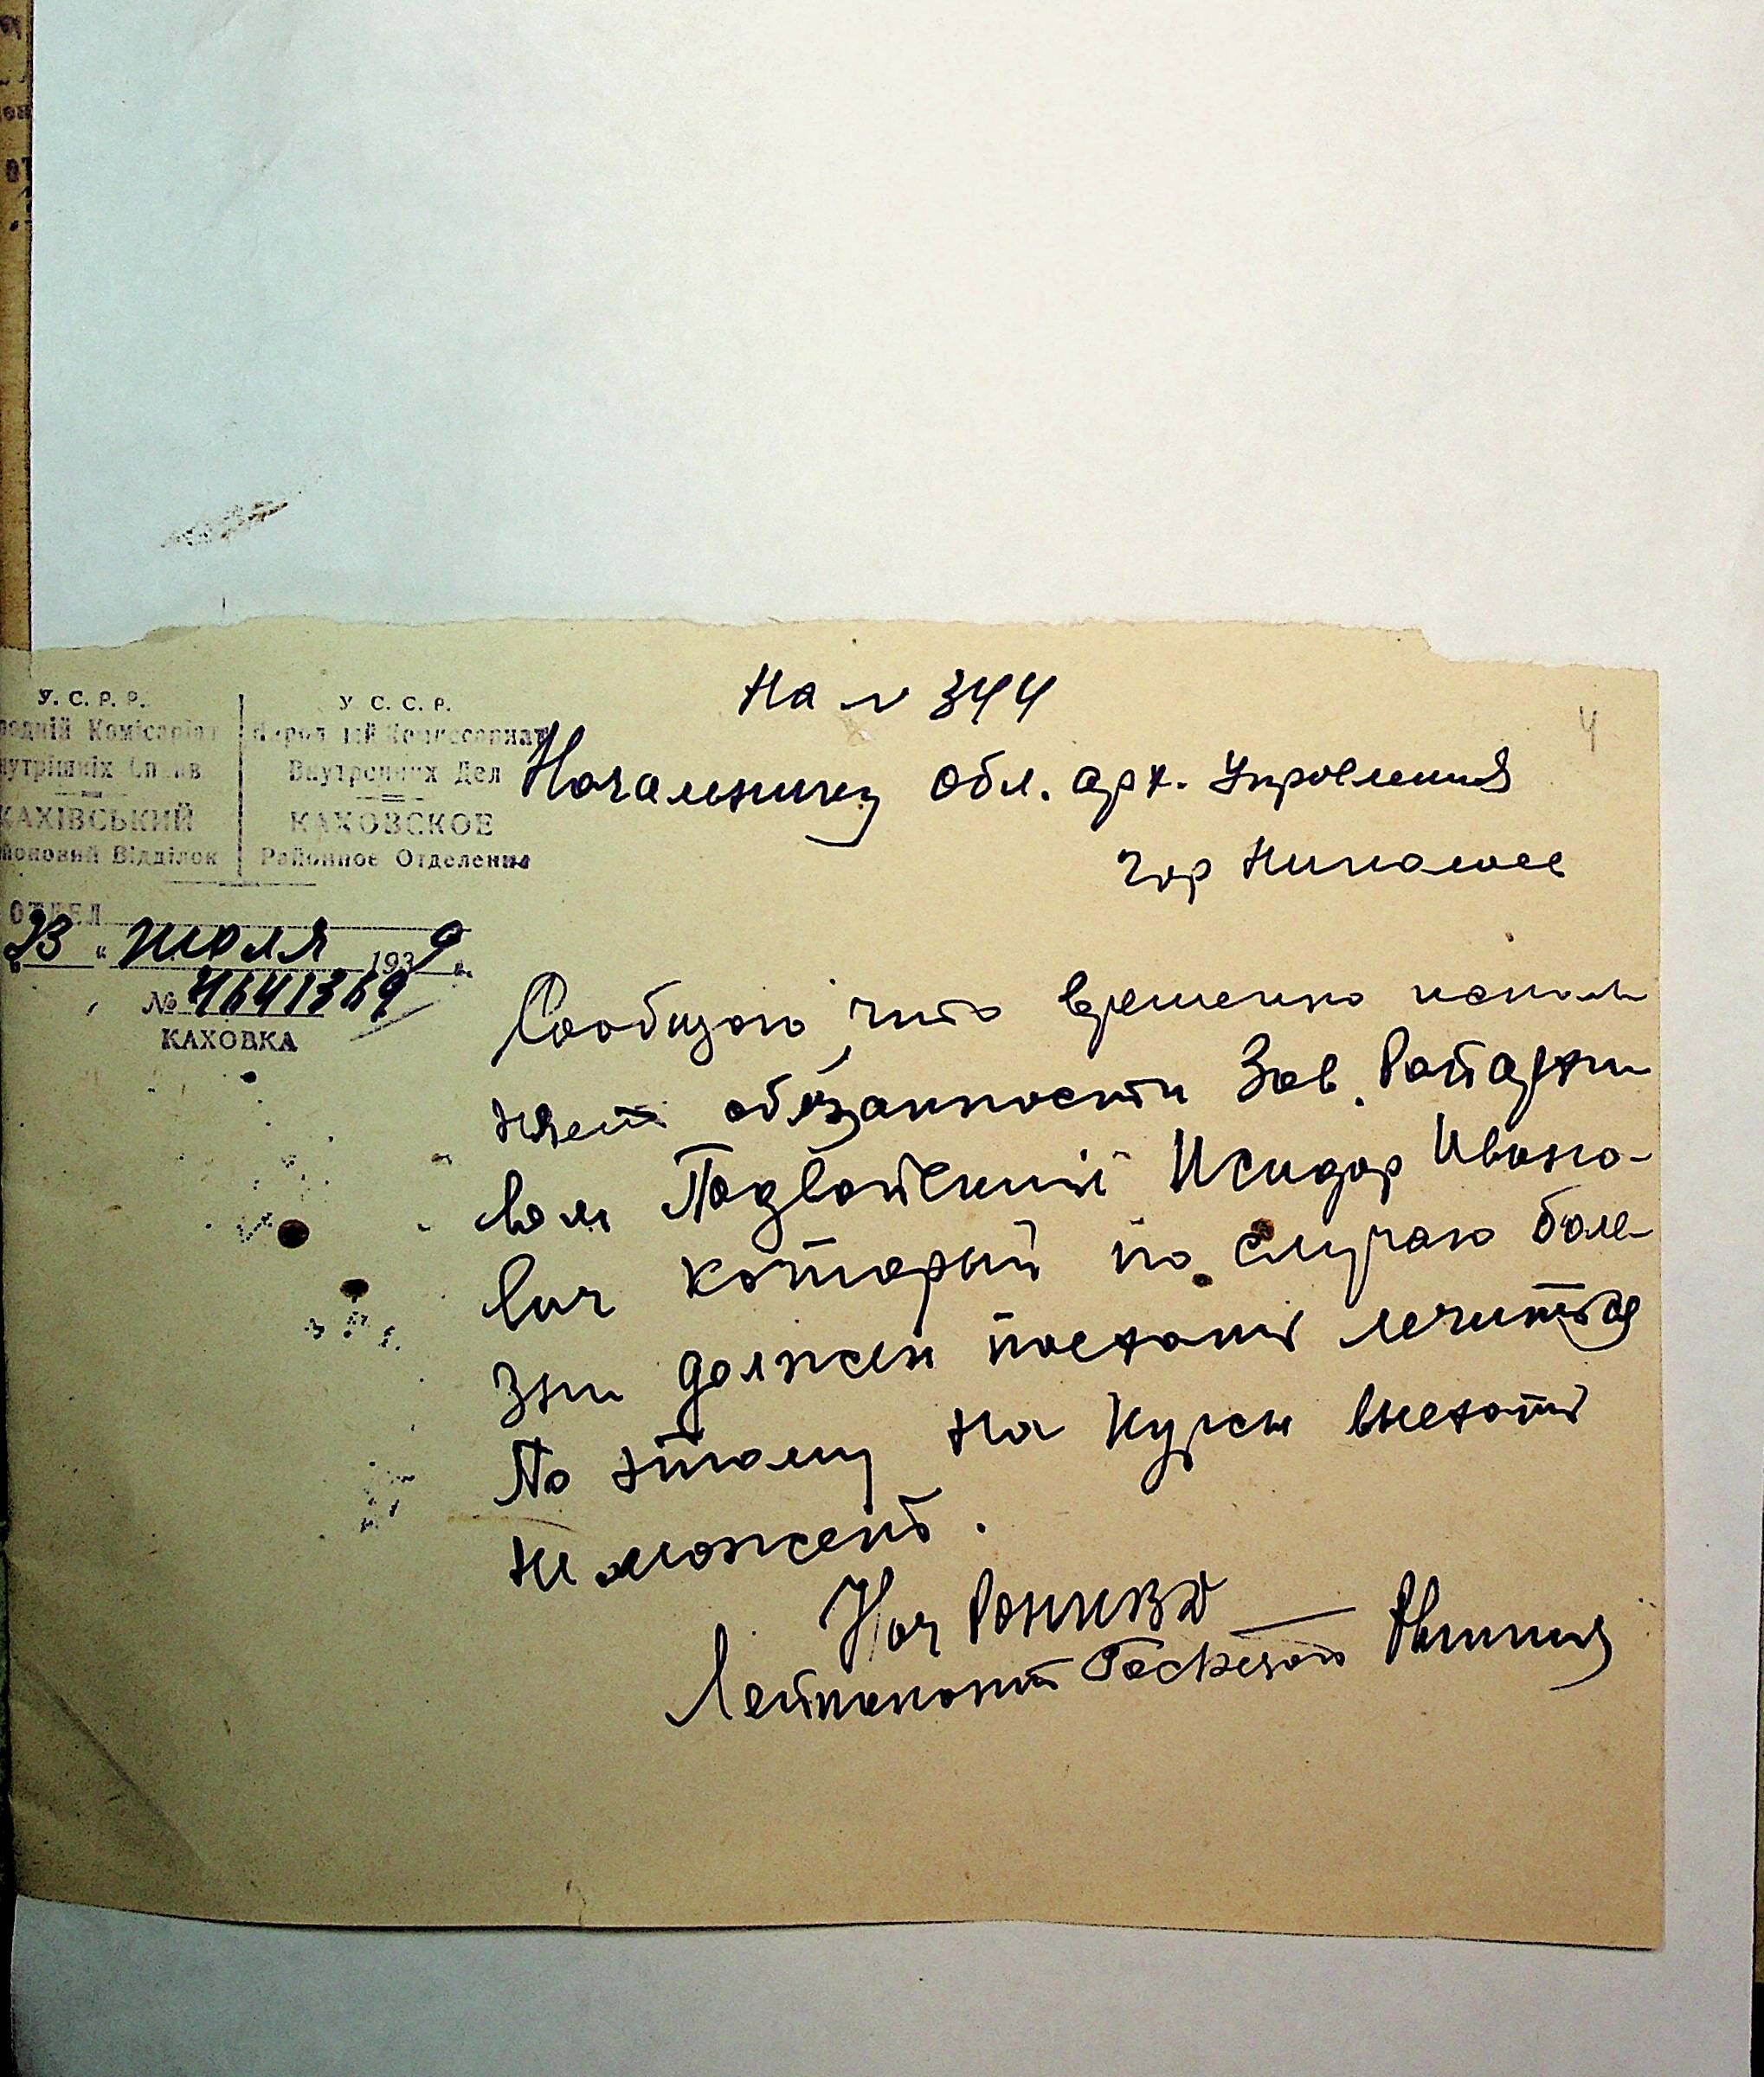 У. С. Р. Р.
родній Комісаріат
нутрішніх Справ
КАХІВСЬКИЙ
йоновий Відділок
У С. С. Р.
Народный Комиссариат
Внутренних Дел
КАХОВСКОЕ
Районное Отделение
ОТДЕЛ
23 " июля 1939 г.
№ 4641369
КАХОВКА
4
На № 344
Начальнику обл. арх. Управления
гор Николаев
Сообщаю что временно испол
няет обязанности Зав. Райархи
вом Подвойский Исидор Ивано-
вич который по случаю боле-
зни должен поехать лечится
По этому на курсы выехать
не может.
Нач РОНКВД
Лейтенант Госбезоп